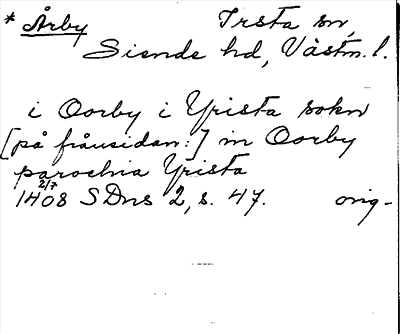 * Årby Irsta sn,
Siende hd, Västm. l.
i Oorby i Yrista sokn
[på frånsidan:] in Oorby
parochia Yrista
1408 2/7 SDns 2, s. 47. orig-